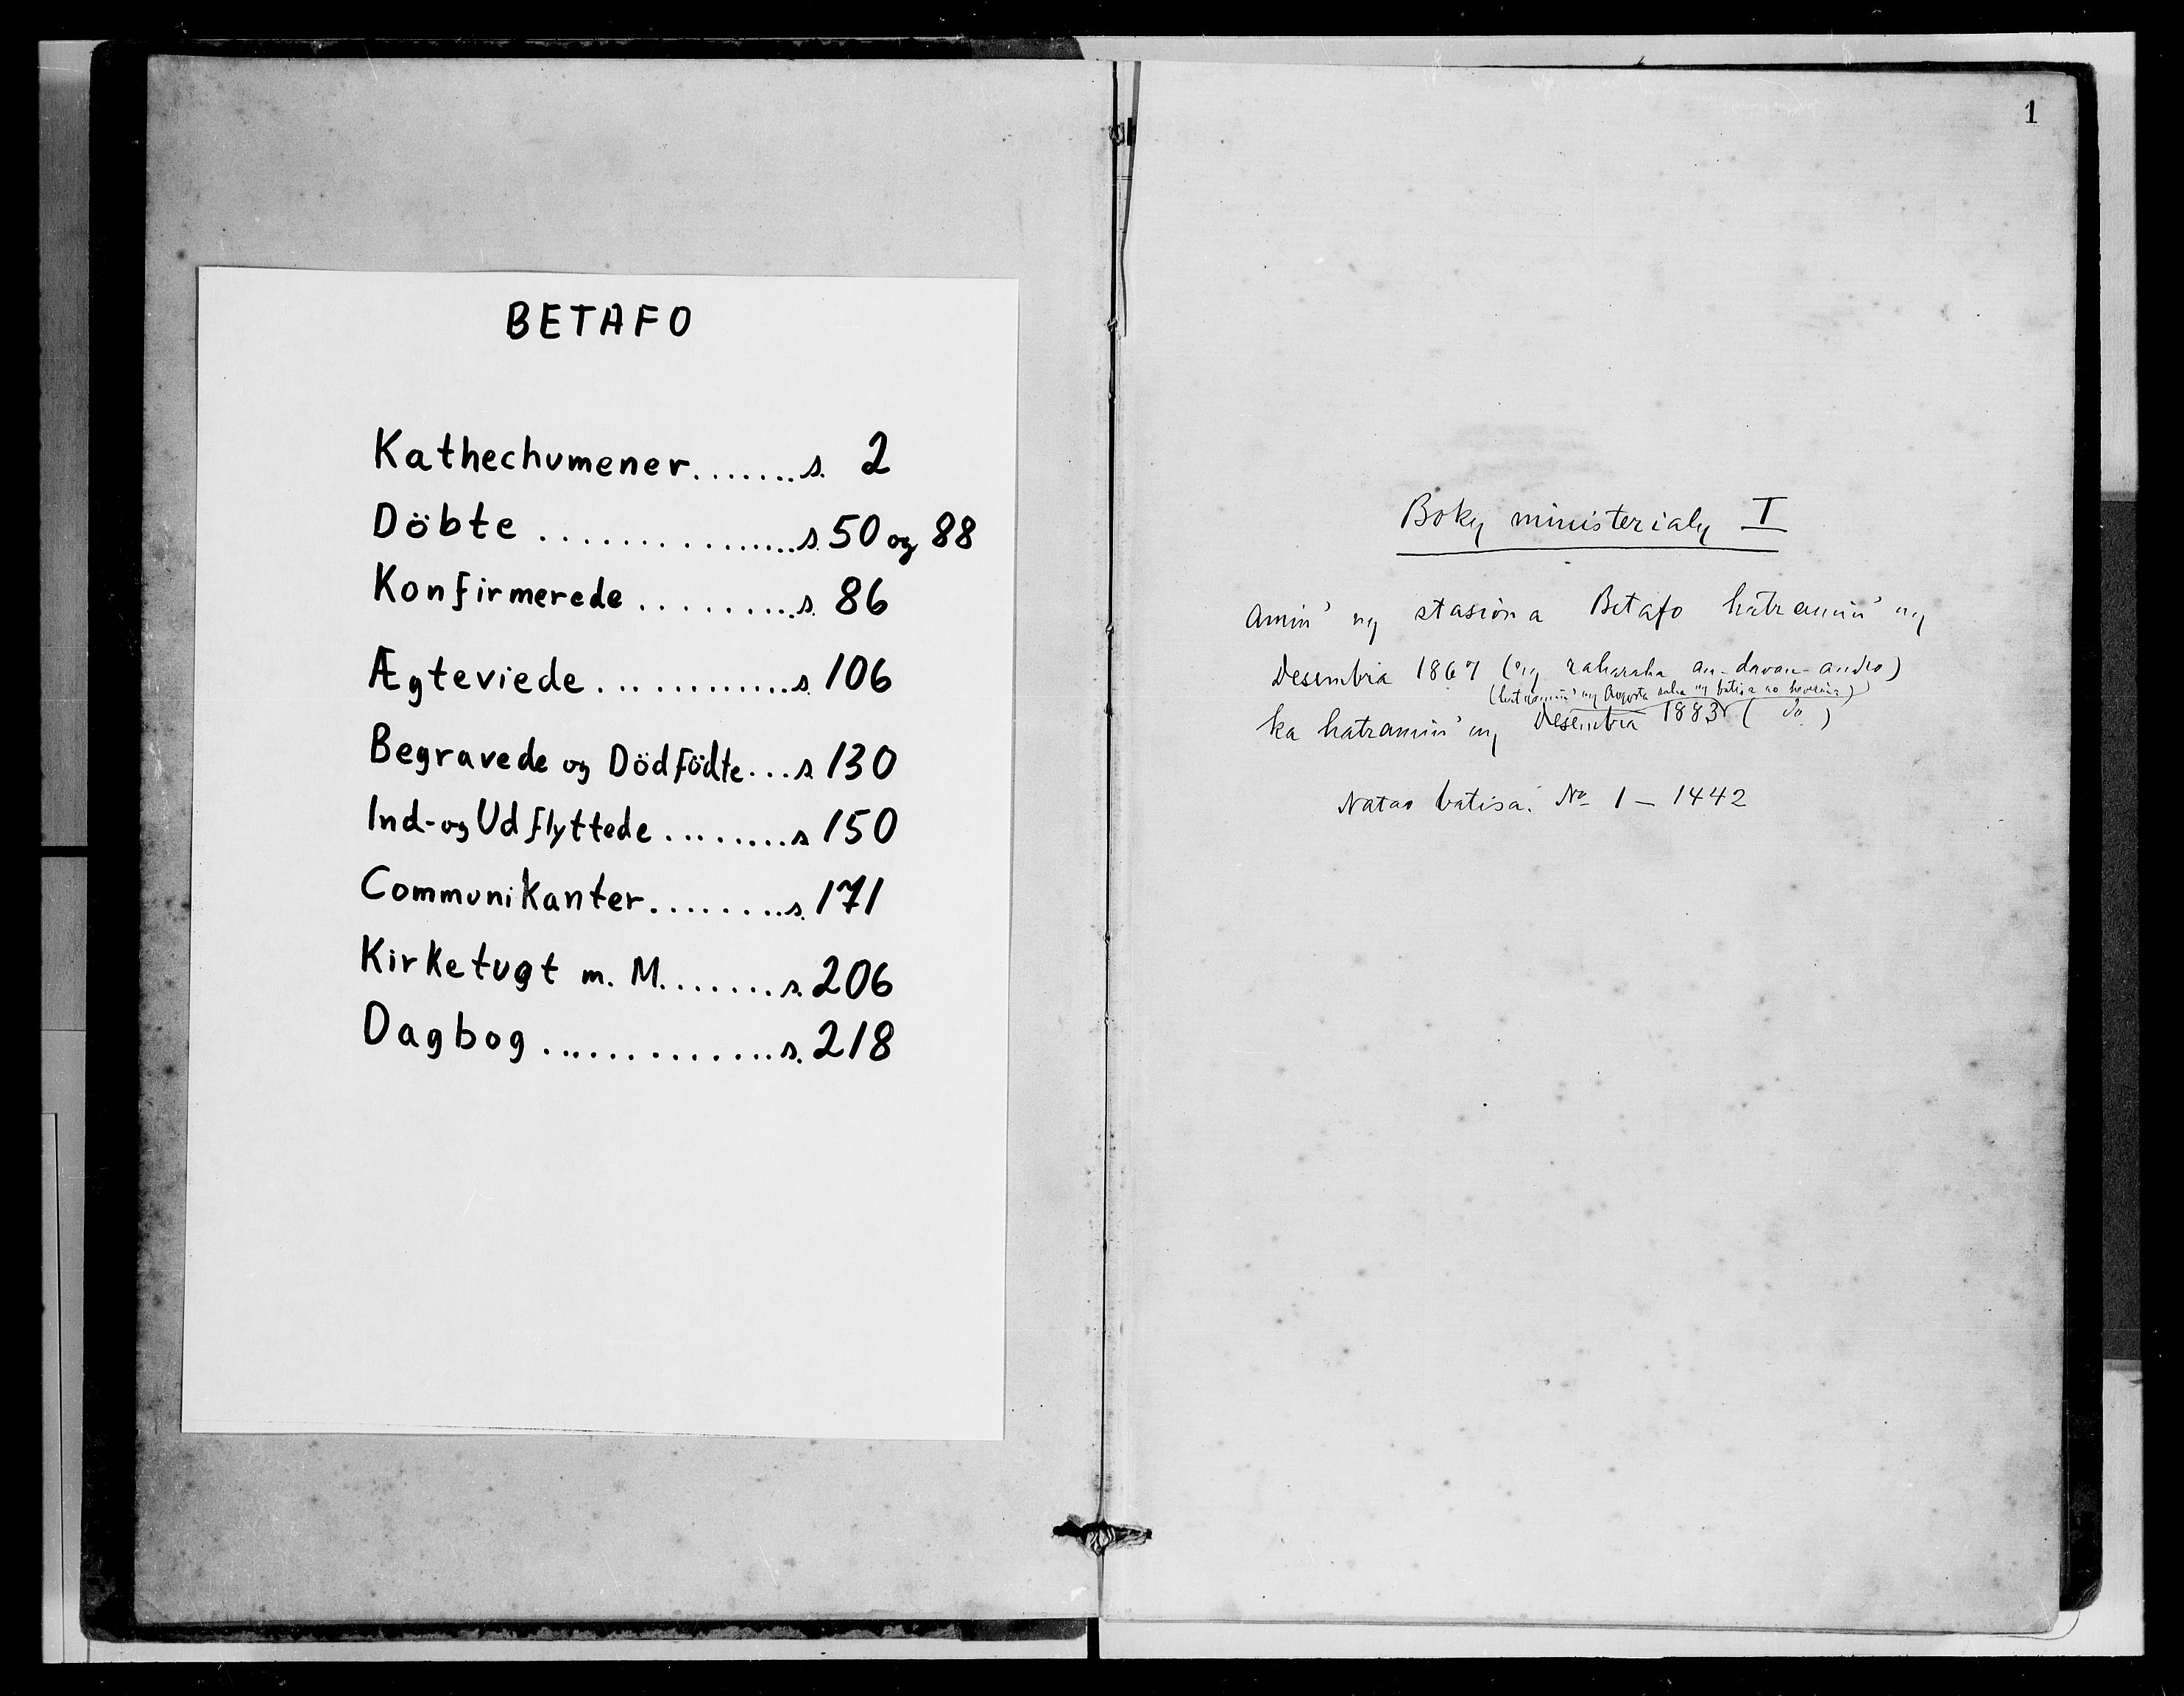 BETAFO
Kathechumener.......s. 2
Döbte ................s. 50 og 88
Konfirmerede .........s. 86
Ægteviede.............s. 106
Begravede og Dödfödte...s. 130
Ind- og Udflyttede ........s. 150
Communikanter........s. 171
Kirketugt m. M........s. 206
Dagbog .............s. 218
1
Boky ministerialy I
Amin' ny stasiona Betafo hatramin' ny
Desembra 1867 (ny raharaha an-davan-andro)
(hatramin' ny Aogosta ny batisa no
ka hatramin' ny Desembra 1883 ( do )
Natao batisa: No 1 – 1442